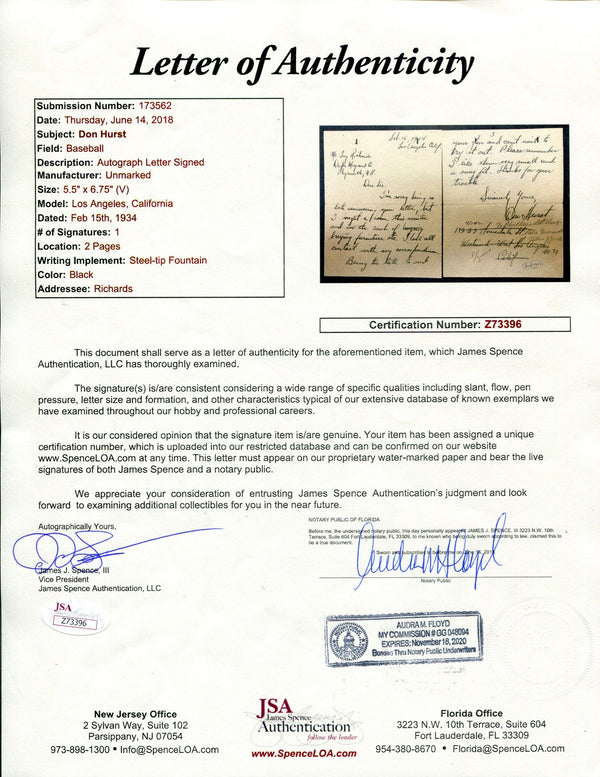 Letter of Authenticity
Submission Number: 173562
Date: Thursday, June 14, 2018
Subject: Don Hurst
Field: Baseball
Description: Autograph Letter Signed
Manufacturer: Unmarked
Size: 5.5" x 6.75" (V)
Model: Los Angeles, California
Dated: Feb 15th, 1934
# of Signatures: 1
Location: 2 Pages
Writing Implement: Steel-tip Fountain
Color: Black
Addressee: Richards
Los Angeles Calif
Dear Sir
I'm sorry being so
late answering your letter, but
Being too late to
3
your fan and can't wait to
try it out. Please remember
I like them very small and
Thanks for your
trouble.
Sincerely Yours
Don Hurst
Certification Number: Z73396
This document shall serve as a letter of authenticity for the aforementioned item, which James Spence
Authentication, LLC has thoroughly examined.
The signature(s) is/are consistent considering a wide range of specific qualities including slant, flow, pen
pressure, letter size and formation, and other characteristics typical of our extensive database of known exemplars we
have examined throughout our hobby and professional careers.
It is our considered opinion that the signature item is/are genuine. Your item has been assigned a unique
certification number, which is uploaded into our restricted database and can be confirmed on our website
www.SpenceLOA.com at any time. This letter must appear on our proprietary water-marked paper and bear the live
signatures of both James Spence and a notary public.
We appreciate your consideration of entrusting James Spence Authentication's judgment and look
forward to examining additional collectibles for you in the near future.
Autographically Yours,
James J. Spence, III
Vice President
James Spence Authentication, LLC
JSA
Z73396
NOTARY PUBLIC OF FLORIDA
Before me, the undersigned notary public, this day personally appeared JAMES J. SPENCE, III 3223 N.W. 10th
Terrace, Suite 604 Fort Lauderdale, FL 33309, to me known who being duly sworn according to law, claimed this to
be a true document.
Sworn and subscribed to before me
Notary Public
AUDRA M. FLOYD
MY COMMISSION # GG 048094
EXPIRES: November 16, 2020
Bonded Thru Notary Public Underwriters
New Jersey Office
2 Sylvan Way, Suite 102
Parsippany, NJ 07054
973-898-1300 • Info@SpenceLOA.com
JSA
James Spence
Authentication
follow the leader
www.SpenceLOA.com
Florida Office
3223 N.W. 10th Terrace, Suite 604
Fort Lauderdale, FL 33309
954-380-8670 • Florida@SpenceLOA.com